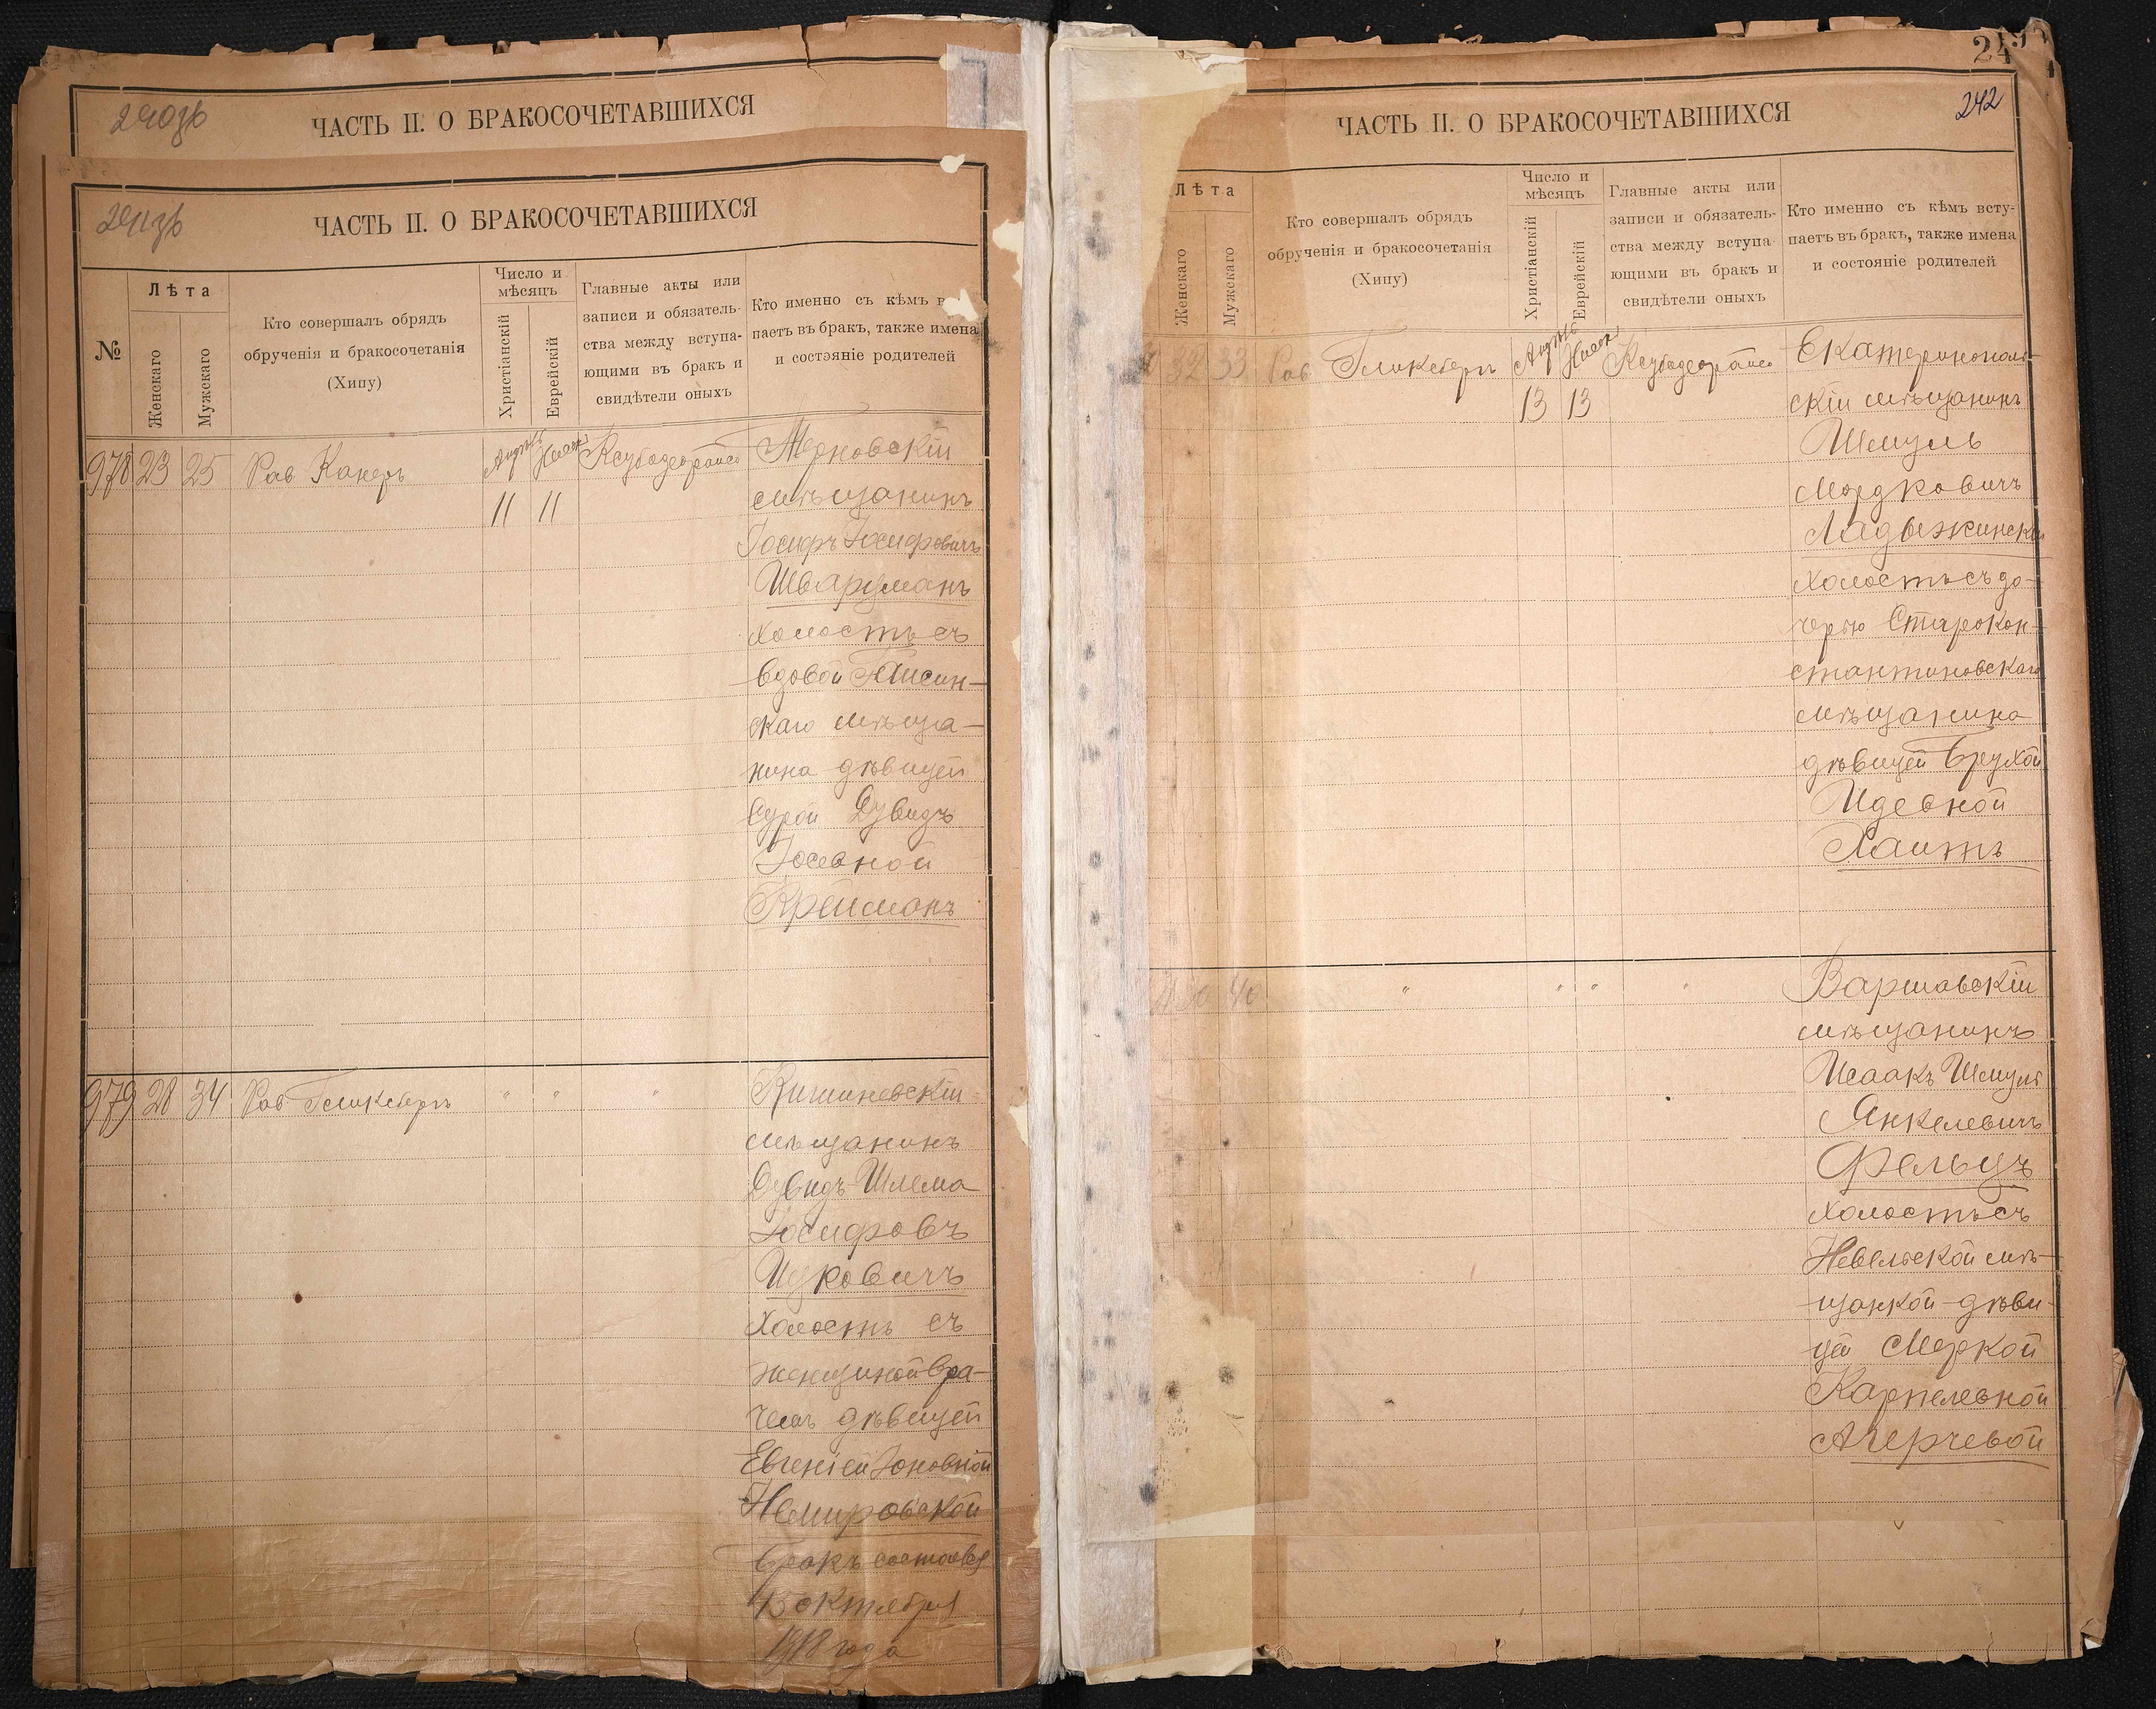 240зв
ЧАСТЬ II. О БРАКОСОЧЕТАВШИХСЯ
241зв
ЧАСТЬ II. О БРАКОСОЧЕТАВШИХСЯ
№
Лѣта
Женскаго
Мужскаго
Кто совершалъ обрядъ
обрученія и бракосочетанія
(Хипу)
Число и
мѣсяцъ
Христіанскій
Еврейскій
Главные акты или
записи и обязатель-
ства между вступа-
ющими въ бракъ и
свидѣтели оныхъ
Кто именно съ кѣмъ в
паетъ въ бракъ, также имена
и состэяніе родителей
978 23 25 Рав Канеръ
11 11
Терновскій
мѣщанинъ
Іосифъ Іосифовичъ
Шварцманъ
холостъ съ
вдовой Гайсин-
скаго мѣща-
нина дѣвицей
Сурой Дувидъ
Іосевной
Крейсманъ
979 28 34 Рав Гликсбергъ " " "
Кишиневскій
мѣщанинъ
Дувидъ-Шлема
Іосифовъ
Ицковичъ
холостъ съ
женщиной вра-
чемъ дѣвицей
Евгеніей Іоновной
Немировской
бракъ состоялся
15 октября
1918 года
24
242
ЧАСТЬ II. О БРАКОСОЧЕТАВШИХСЯ
Лѣта
Женскаго
Мужскаго
Кто совершалъ обрядъ
обрученія и бракосочетанія
(Хипу)
Число и
мѣсяцъ
Христіанскій
Еврейскій
Главные акты или
записи и обязатель-
ства между вступа-
ющими въ бракъ и
свидѣтели оныхъ
Кто именно съ кѣмъ всту-
паетъ въ бракъ, также имена
и состояніе родителей
32 33 Рав Гликсбергъ
13 13
Екатеринополь-
скій мѣщанинъ
Шмуль
Мордковичъ
Ладыжинскій
холостъ съ до-
черью Старокон-
стантиновскаго
мѣщанина
дѣвицей Брухой
Идевной
Хаитъ
40 " " " "
Варшавскій
мѣщанинъ
Исаакъ Шмуль
Янкелевичъ
Фельцъ
холостъ съ
Невельской мѣ-
щанкой дѣви-
цей Меркой
Карпелевной
Агерчевой